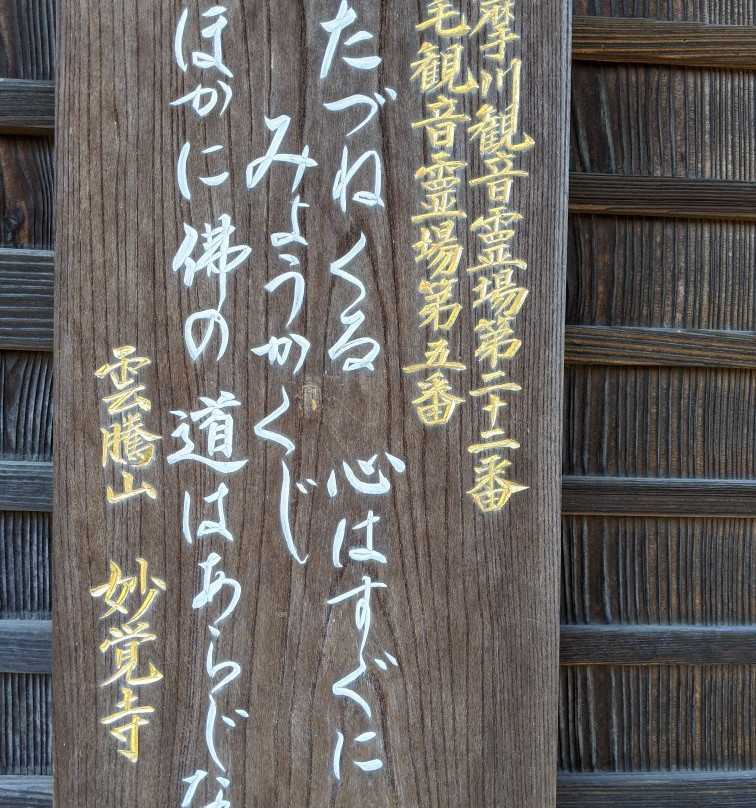 摩川観音霊場第二十二番
毛観音霊場第五番
たづねくる 心はすぐに
みようかくじ
ほかに 佛の 道はあらじな
雲騰山 妙覚寺